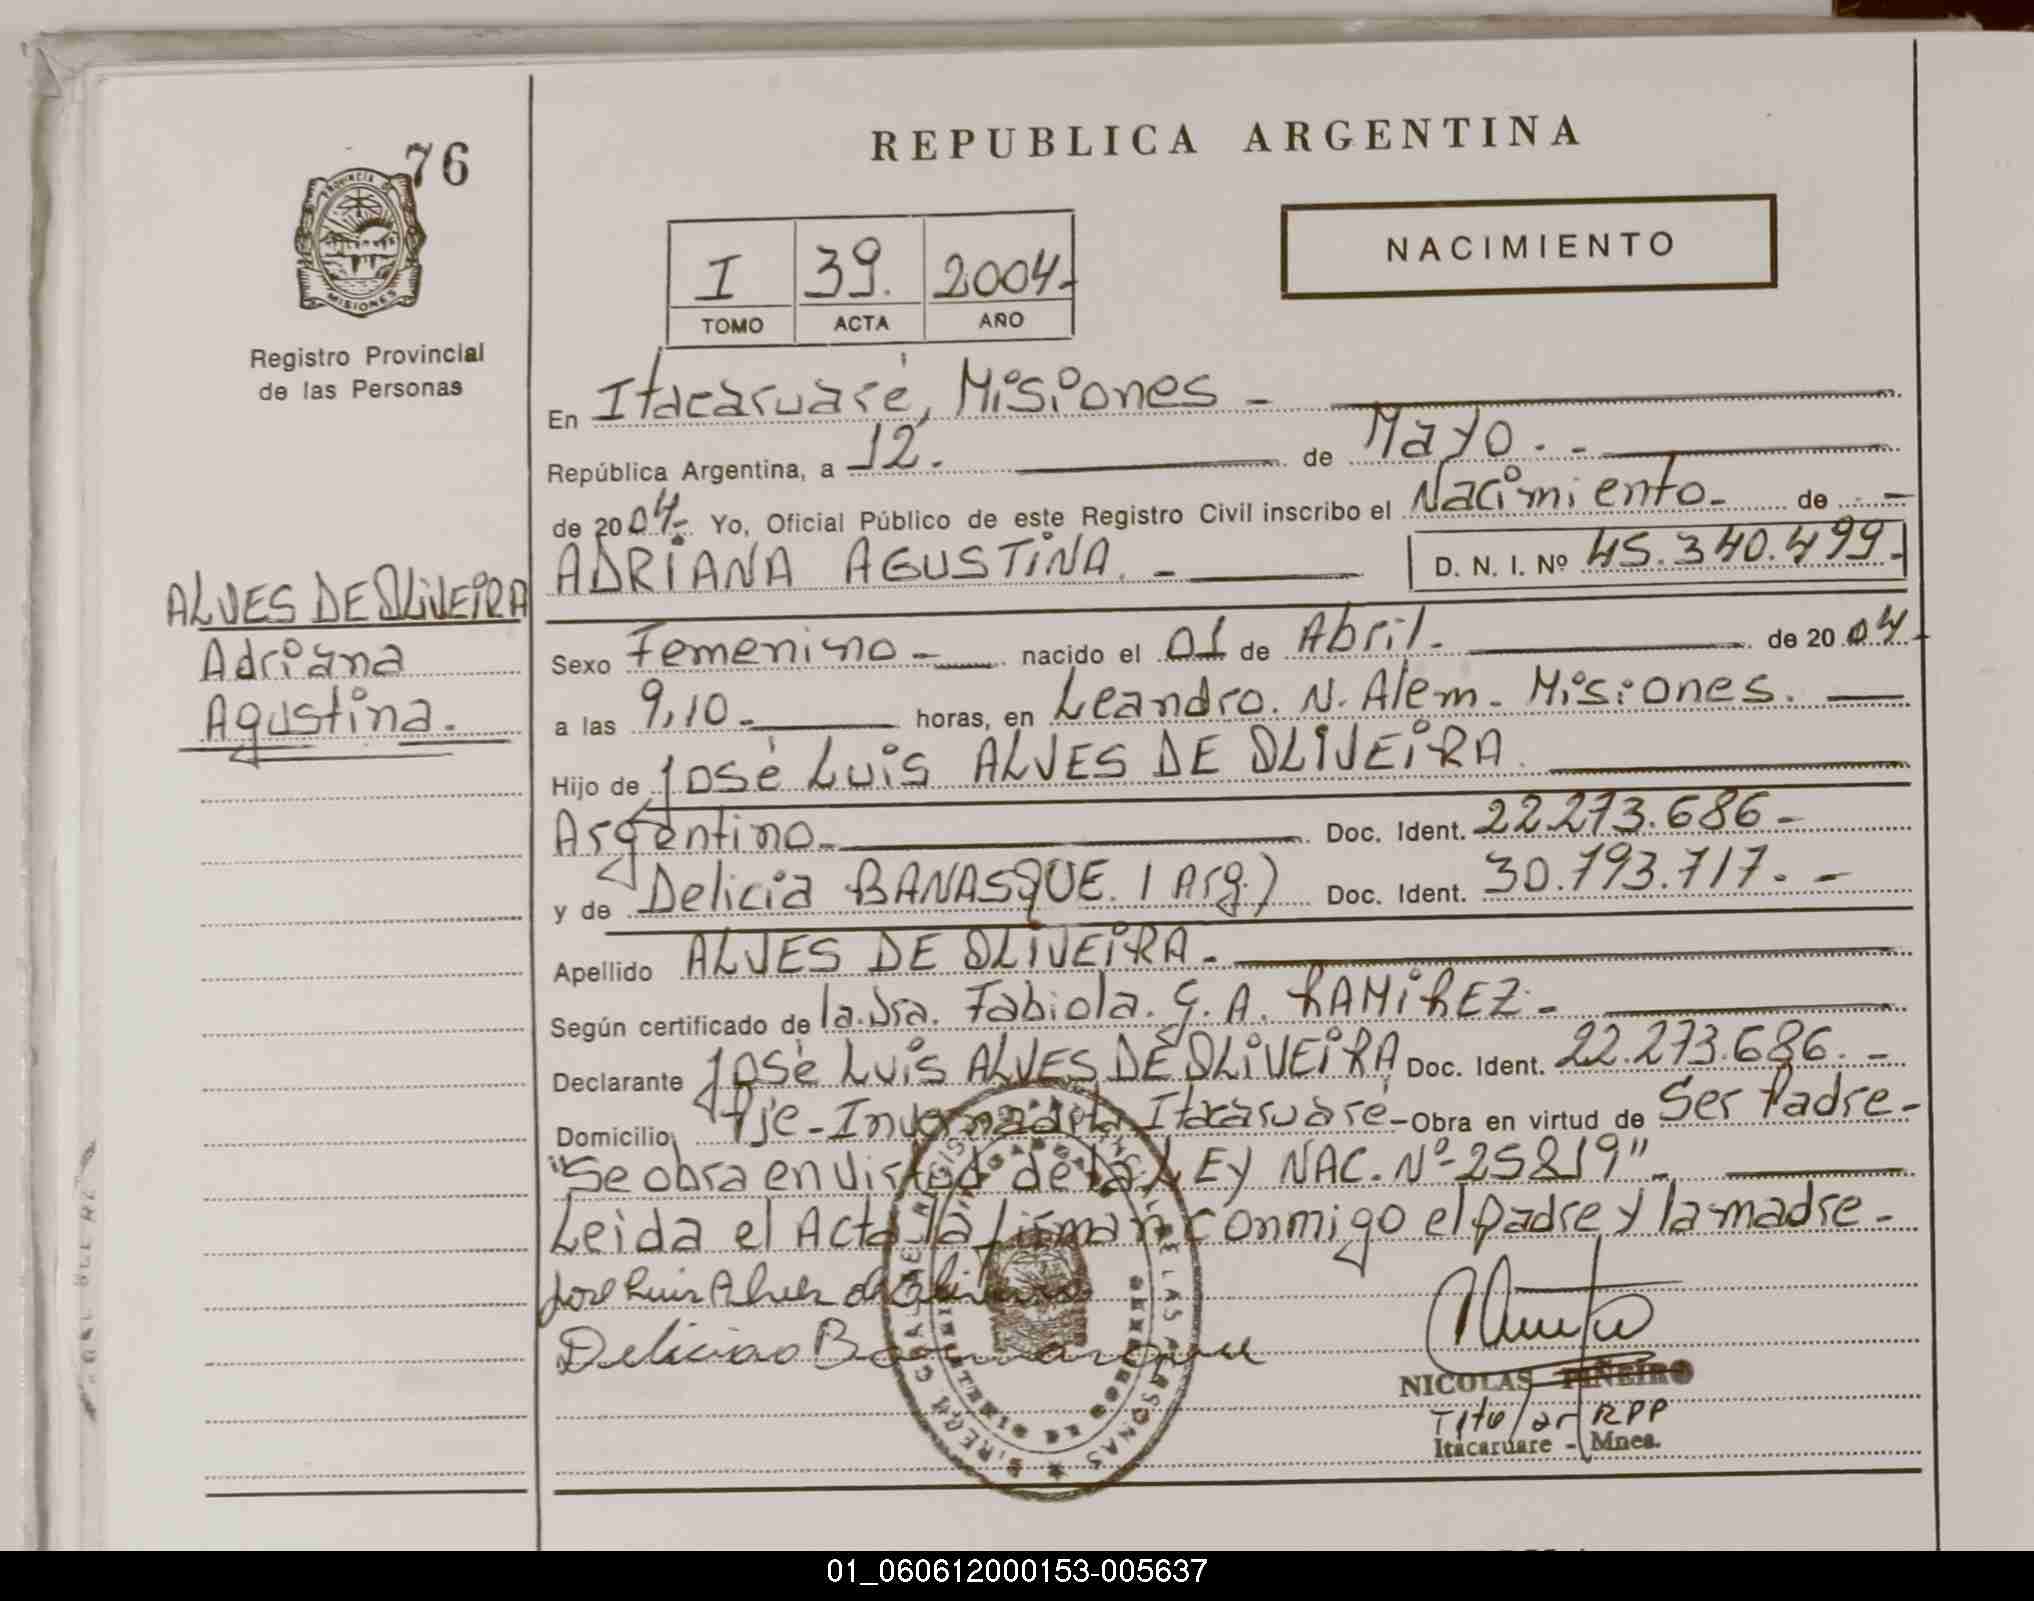 76
PROVINCIA DE
MISIONES
Registro Provincial
de las Personas
ALVES DE OLIVEIRA
Adriana
Agustina.
REPUBLICA ARGENTINA
NACIMIENTO
I 39. 2004-
TOMO ACTA AÑO
En Itacaruaré, Misiones -
República Argentina, a 12. de Mayo. -
de 2004- Yo, Oficial Público de este Registro Civil inscribo el Nacimiento- de -
ADRIANA AGUSTINA. - D. N. I. Nº 45.340.499-
Sexo Femenino - nacido el 01 de Abril. de 2004-
a las 9,10- horas, en Leandro. N. Alem. Misiones.
Hijo de José Luis ALVES DE OLIVEIRA.
Argentino- Doc. Ident. 22.273.686-
y de Delicia BANASQUE. (Arg.) Doc. Ident. 30.793.717. -
Apellido ALVES DE OLIVEIRA -
Según certificado de la Dra. Fabiola. G. A. RAMIREZ -
Declarante José Luis ALVES DE OLIVEIRA Doc. Ident. 22.273.686. -
Domicilio Pje- Invernada Itacaruaré- Obra en virtud de Ser Padre -
"Se obra en virtud de la LEY NAC. Nº 25819"-
Leida el Acta la firman conmigo el padre y la madre -
José Luis Alves de Oliveira
Delicia
NICOLAS PIÑEIRO
Titular RPP
Itacaruare - Mnes.
01_060612000153-005637